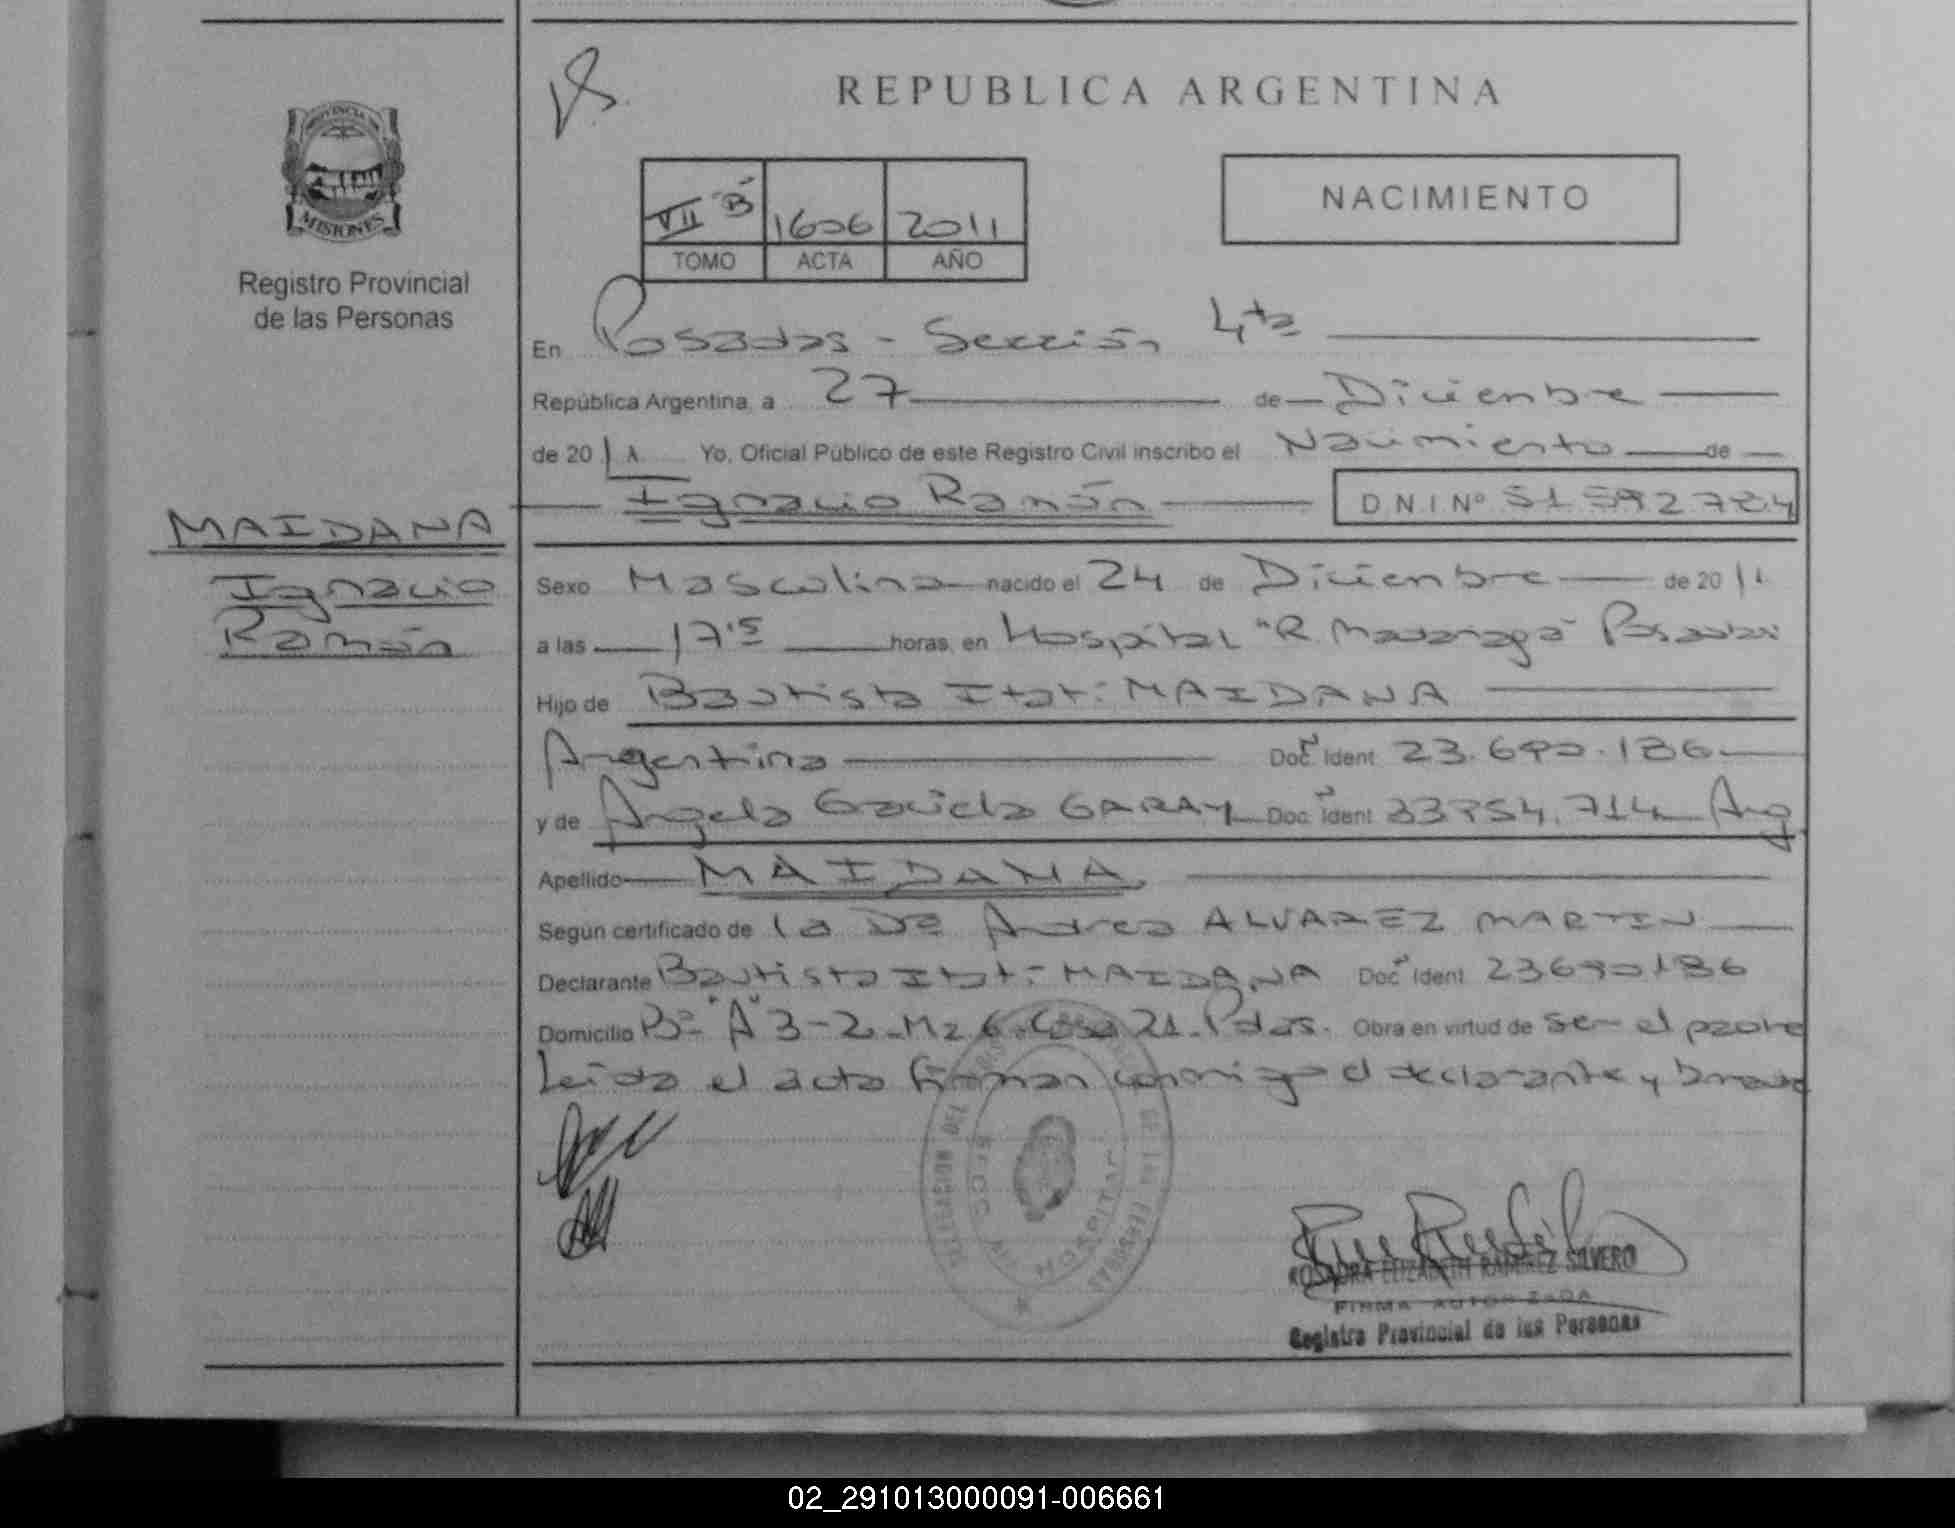 REPUBLICA ARGENTINA
PROVINCIA DE
MISIONES
Registro Provincial
de las Personas
VII "B" 1606 2011
TOMO ACTA AÑO
NACIMIENTO
En Posadas - Sección 4ta
República Argentina, a 27 de Diciembre
de 2011 Yo, Oficial Público de este Registro Civil inscribo el Nacimiento de
Ignacio Ramón D.N.I Nº 51 592 784
MAIDANA
Ignacio
Ramón
Sexo Masculino nacido el 24 de Diciembre de 2011
a las 17'5 horas, en Hospital "R. Madariaga" Posadas
Hijo de Bautista Itatí MAIDANA
Argentina Doc. Ident. 23.690.186
y de Angela Graciela GARAY Doc. Ident. 33.754.714 Arg
Apellido MAIDANA
Según certificado de la Dra Andrea ALVAREZ MARTIN
Declarante Bautista Itatí MAIDANA Doc. Ident. 23690186
Domicilio Bº "A" 3-2 Mz 6 Casa 21. Pdas. Obra en virtud de ser el padre
Leida el acta firman conmigo el declarante y
SECC. HOSPITAL
ROSANDRA ELIZABETH RAMIREZ SILVERO
FIRMA AUTORIZADA
Registro Provincial de las Personas
02_291013000091-006661